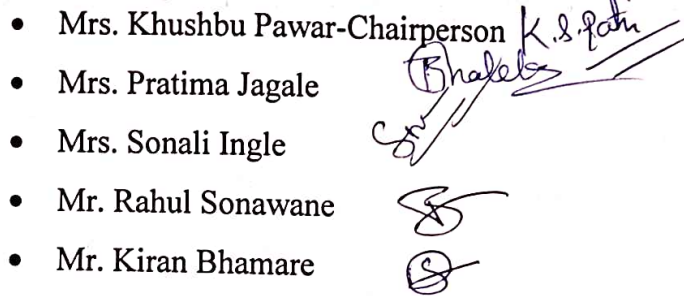 • Mrs. Khushbu Pawar-Chairperson K.S.
• Mrs. Pratima Jagale
• Mrs. Sonali Ingle
• Mr. Rahul Sonawane
• Mr. Kiran Bhamare